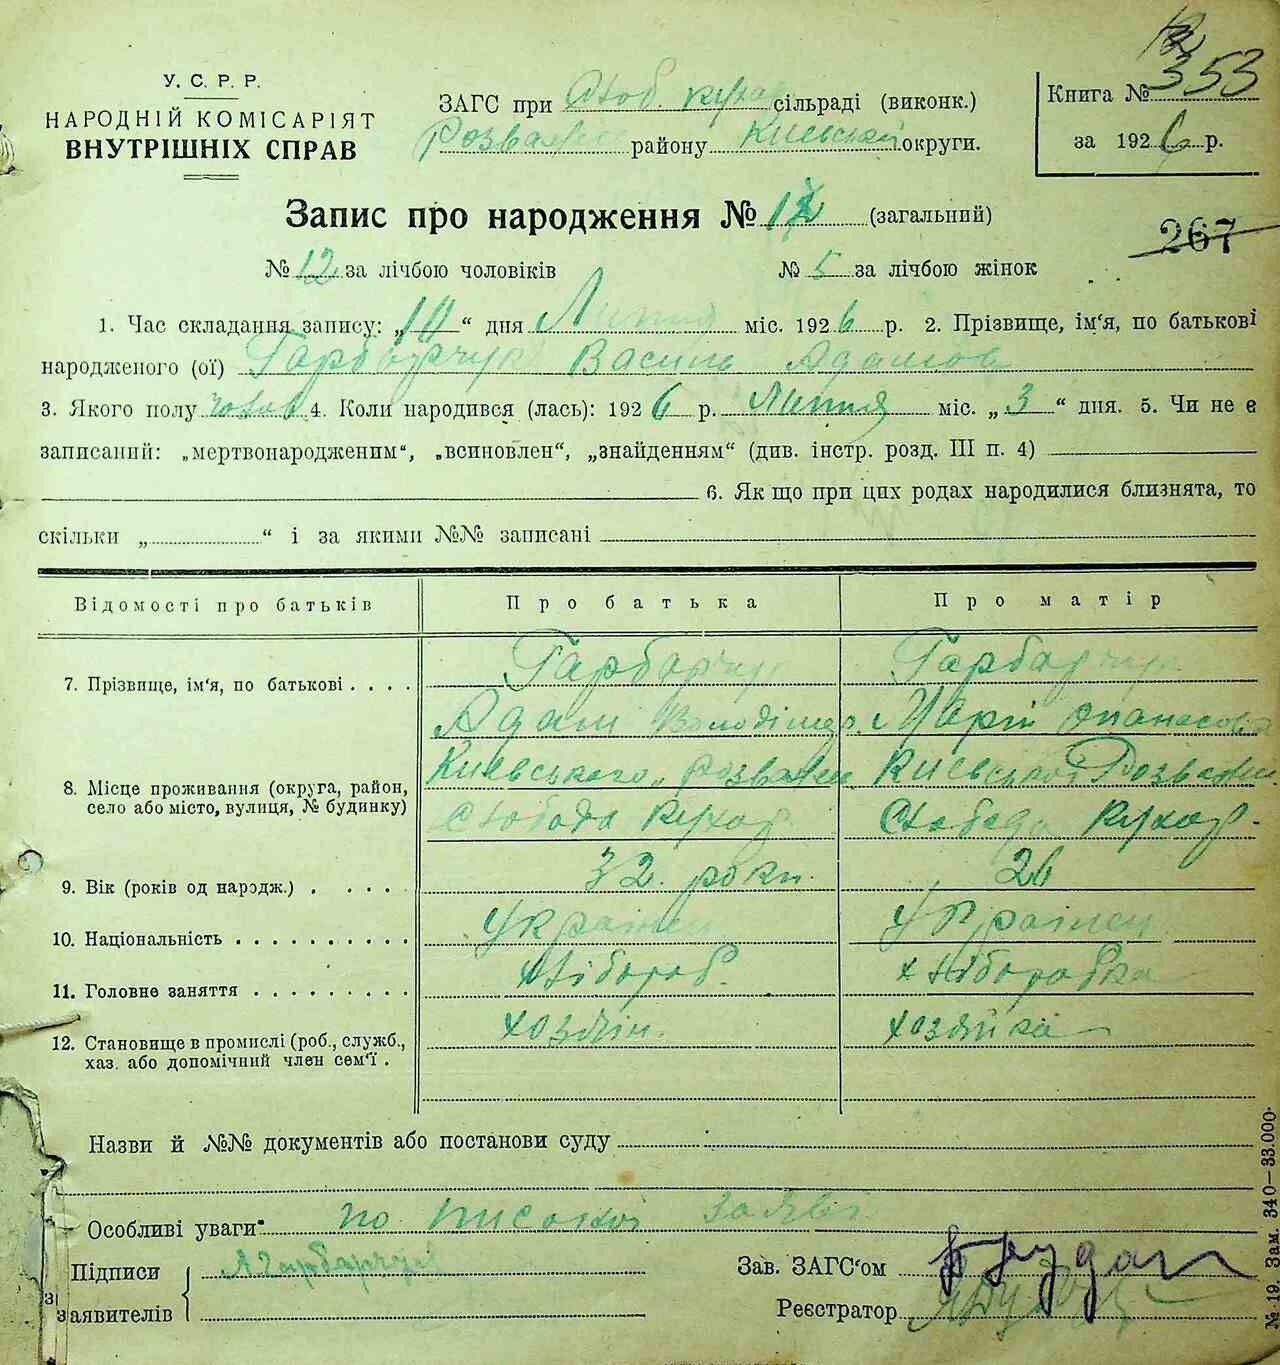 353
У. С. Р. Р.
НАРОДНІЙ КОМІСАРІЯТ
ВНУТРІШНІХ СПРАВ
ЗАГС при Слоб. Кухар сільраді (виконк.)
Розваж району Киевської округи.
Книга №
за 1926 р.
Запис про народження № 17 (загальний)
267
№ 12 за лічбою чоловіків № 5 за лічбою жінок
1. Час складання запису: „10“ дня Липня міс. 1926 р. 2. Прізвище, ім'я, по батькові
народженого (ої) Гарбарчук Василь Адамов
3. Якого полу чолов 4. Коли народився (лась): 1926 р. Липня міс. „3“ дня. 5. Чи не є
записаний: „мертвонародженим“, „всиновлен“, „знайденням“ (див. інстр. розд. III п. 4)
6. Як що при цих родах народилися близнята, то
скільки „ “ і за якими №№ записані
Відомості про батьків Про батька Про матір
7. Прізвище, ім'я, по батькові . . . . Гарбарчук Гарбарчук
Адам Володімер. Марія Опанасова
8. Місце проживання (округа, район, село або місто, вулиця, № будинку) Киевського, Розважев Киевської Розважев.
Слобода Кухар Слобода Кухар.
9. Вік (років од народж.) . . . . . 32. роки. 26
10. Національність . . . . . . . . . . Украінец Украінец
11. Головне заняття . . . . . . . . . хлібороб. хліборобка
12. Становище в промислі (роб., служб., хаз. або допомічний член сем'ї . хозяін. хозяйка
Назви й №№ документів або постанови суду
Особливі уваги: по заяві
Підписи
заявителів
А Гарбарчук
Зав. ЗАГС'ом
Реєстратор
№ 19. Зам. 340—33.000.